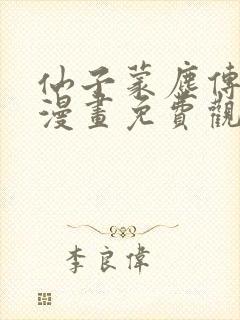 仙子蒙塵傳
漫畫免費觀
李良偉